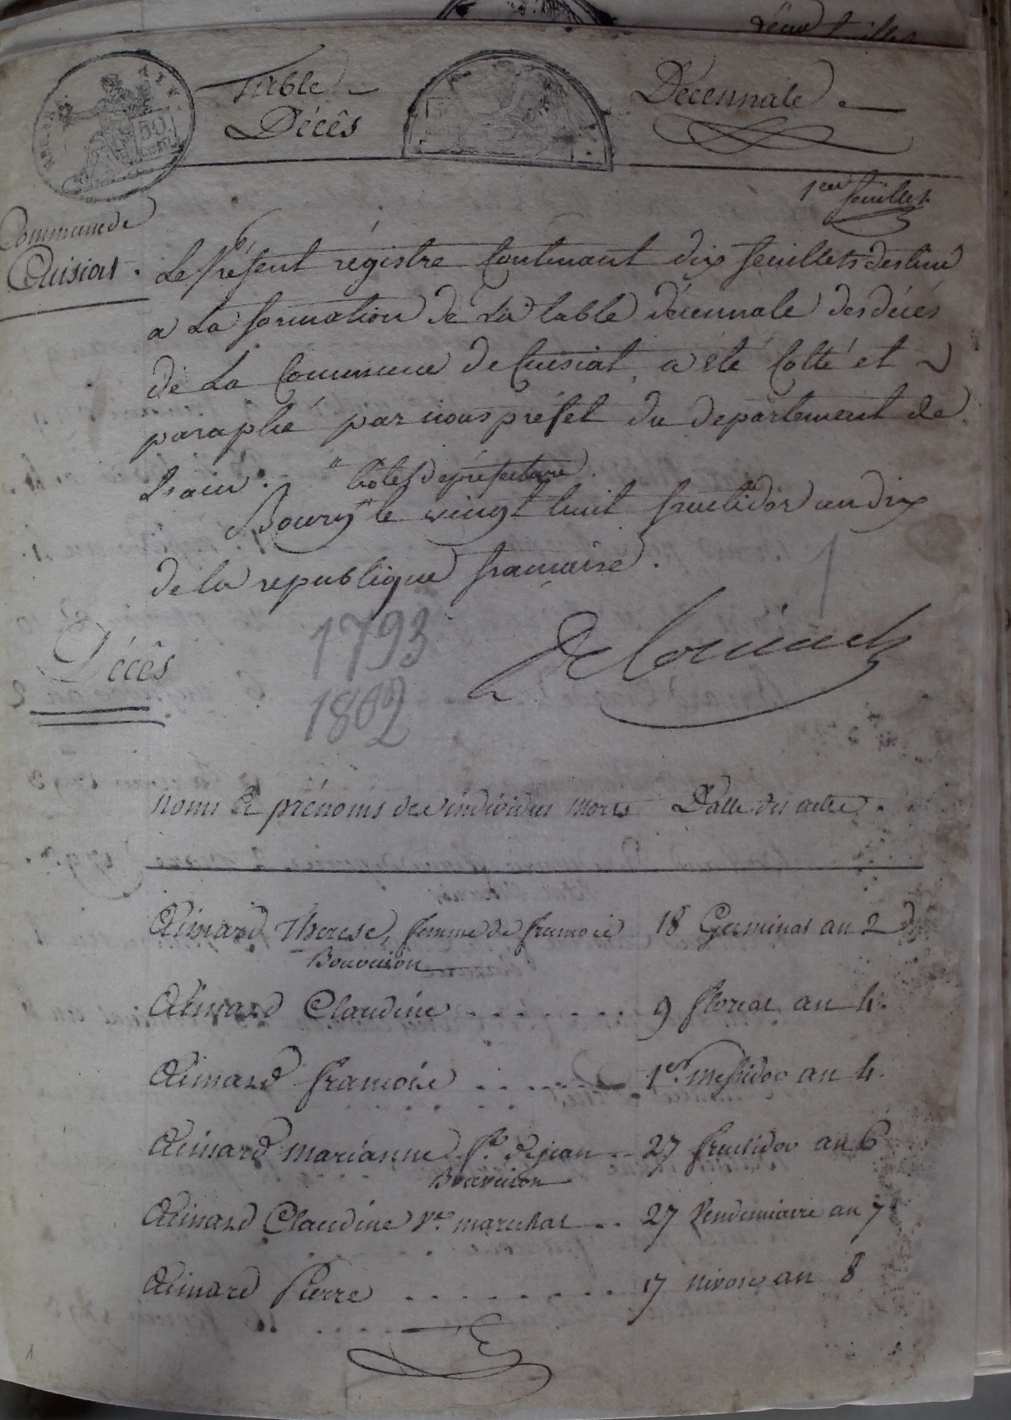 Table Décennale
Décês
1er feuillet
Commune de
Cuisiat.
Le présent régistre Contenant dix feuillets destiné
a La formation de La table décennale des décés
de La Commune de Cuisiat, a eté Cotté et
paraphé par nous préfet du departement de
Lain. hôtel de préfecture.
Bourg le vingt huit fructidor an dix
de la republique francaise.
Décês
1793
1802
noms & prénoms des individus morts Datte des actes.
Therese, femme de francois 18 Germinal an 2
Bouvaison
Claudine . . . . . . . 9 floreal an 4.
francoise . . . . . . . 1er messidor an 4.
marianne fe. de jean 27 fructidor an 6
Bouvaison
Claudine ve. marechal . . 27 Vendemiaire an 7
Pierre . . . . . . . . 17 nivose an 8